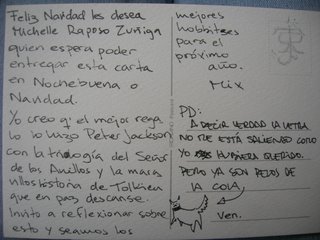 Feliz Navidad les desea
Michelle Raposo Zuñiga
quien espera poder
entregar esta carta
en Nochebuena o
Navidad.
Yo creo q el mejor rega
lo lo hizo Peter Jackson
con la trilogía del Señor
de los Anillos y la mara
villosHistoria de Tolkien
que en paz descanse.
Invito a reflexionar sobre
esto y seguimos los
mejores
hobbitses
para el
próximo
año.
Mix
PD:
A DECIR VERDAD LA LETRA
NO ME ESTÁ SALIENDO COMO
YO HUBIERA QUERIDO.
PERO YA SON PELOS DE
LA COLA
Ven.